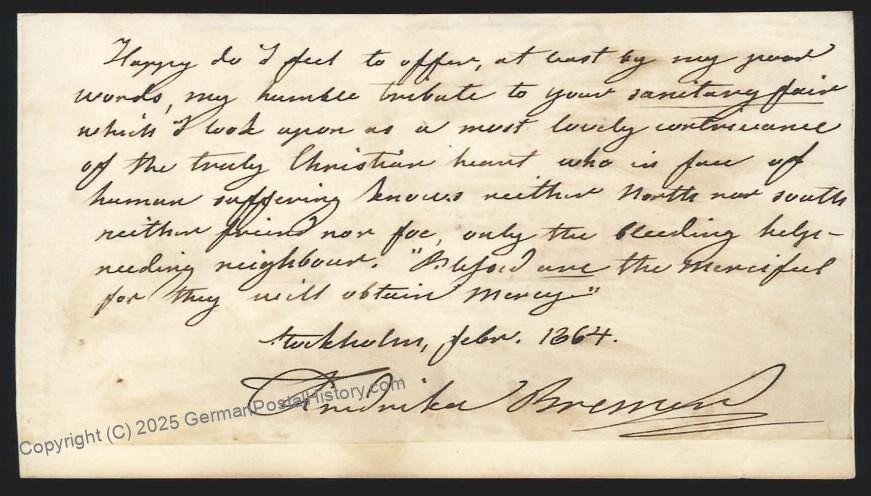 Happy do I feel to offer, at least by my poor
words, my humble tribute to your sanitary fair
which I look upon as a most lovely contrivance
of the truly Christian heart who in face of
human suffering knows neither North nor south
neither friend nor foe, only the bleeding help-
needing neighbour. "Blessed are the merciful
for they will obtain Mercy."
Stockholm, febr. 1864.
Fredrika Bremer
Copyright (C) 2025 GermanPostalHistory.com